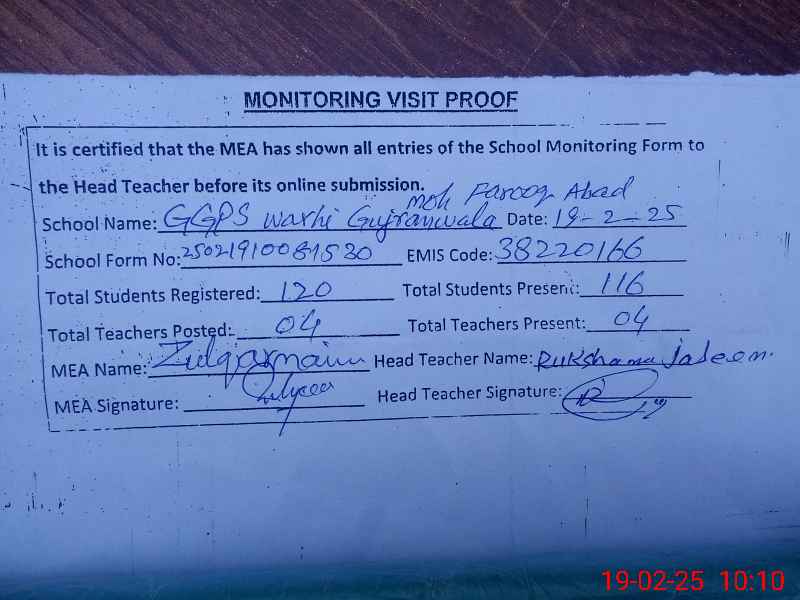 MONITORING VISIT PROOF
It is certified that the MEA has shown all entries of the School Monitoring Form to
the Head Teacher before its online submission.
moh Farooq Abad
School Name: GGPS warhi Gujranwala Date: 19-2-25
School Form No: EMIS Code: 38220166
Total Students Registered: 120 Total Students Present: 116
Total Teachers Posted: 04 Total Teachers Present: 04
MEA Name: Zulqarnain Head Teacher Name: Rukshana
MEA Signature: Head Teacher Signature:
19-02-25 10:10